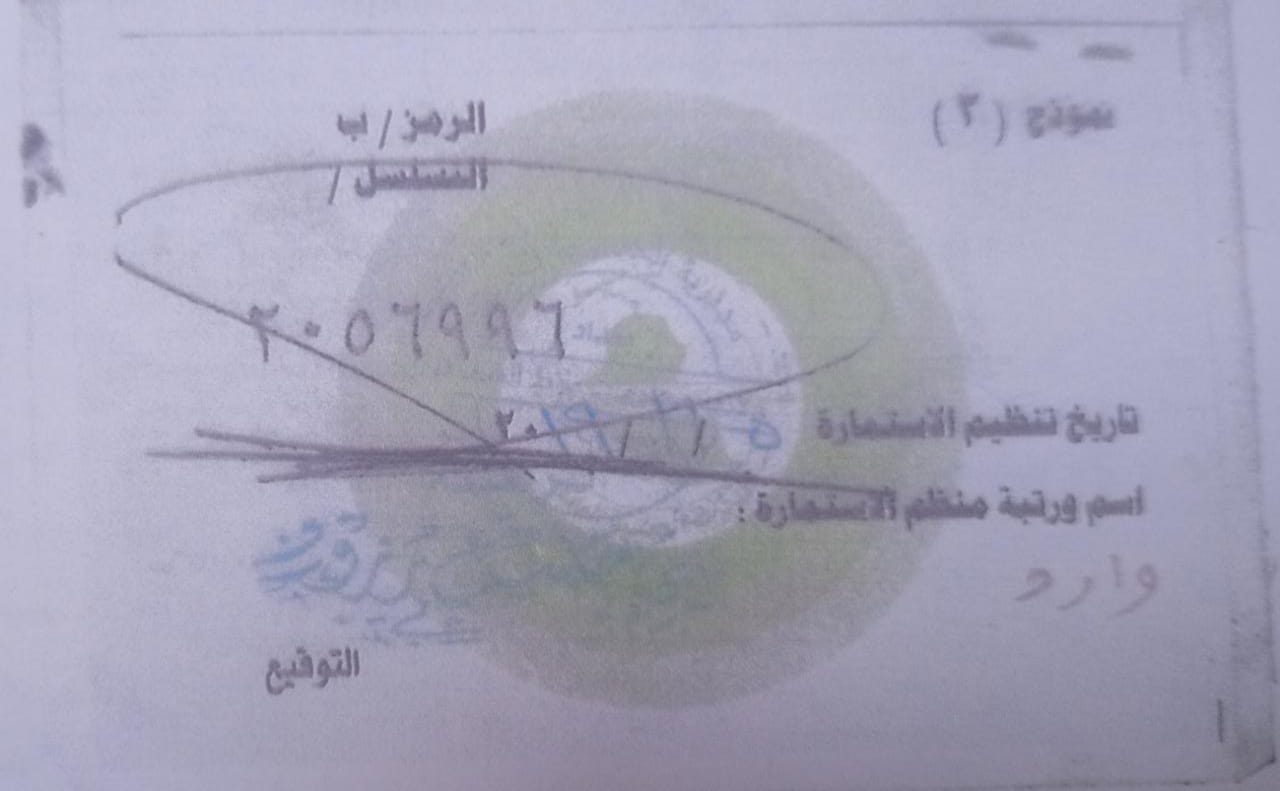 نموذج (٣)
الرمز / ب
التسلسل /
٢٠٥٦٩٩٦
تاريخ تنظيم الاستمارة ٥ / ١١ / ٢٠١٩
اسم ورتبة منظم الاستمارة :
وارد
التوقيع